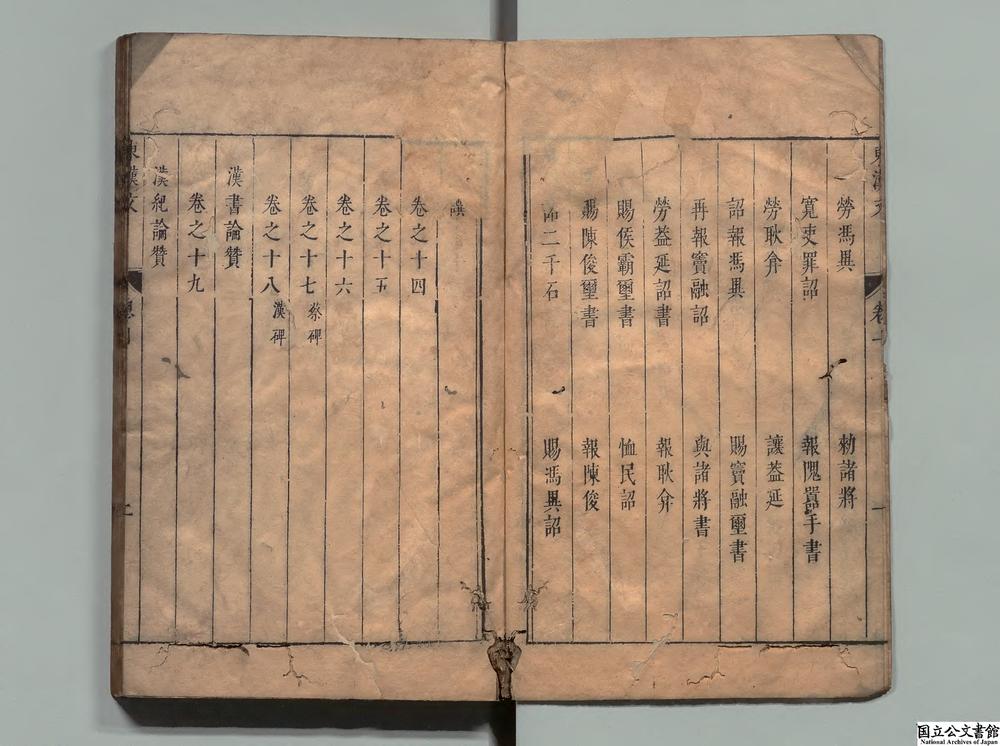 勞馮異 勑諸將
寬吏罪詔 報隗囂手書
勞耿弇 讓葢延
詔報馮異 賜竇融璽書
再報竇融詔 與諸將書
勞葢延詔書 報耿弇
賜侯霸璽書 恤民詔
賜陳俊璽書 報陳俊
二千石 賜馮異詔
卷之十四
卷之十五
卷之十六
卷之十七 蔡碑
卷之十八 漢碑
漢書論贊
卷之十九
漢紀論贊
東漢文
二
国立公文書館
National Archives of Japan